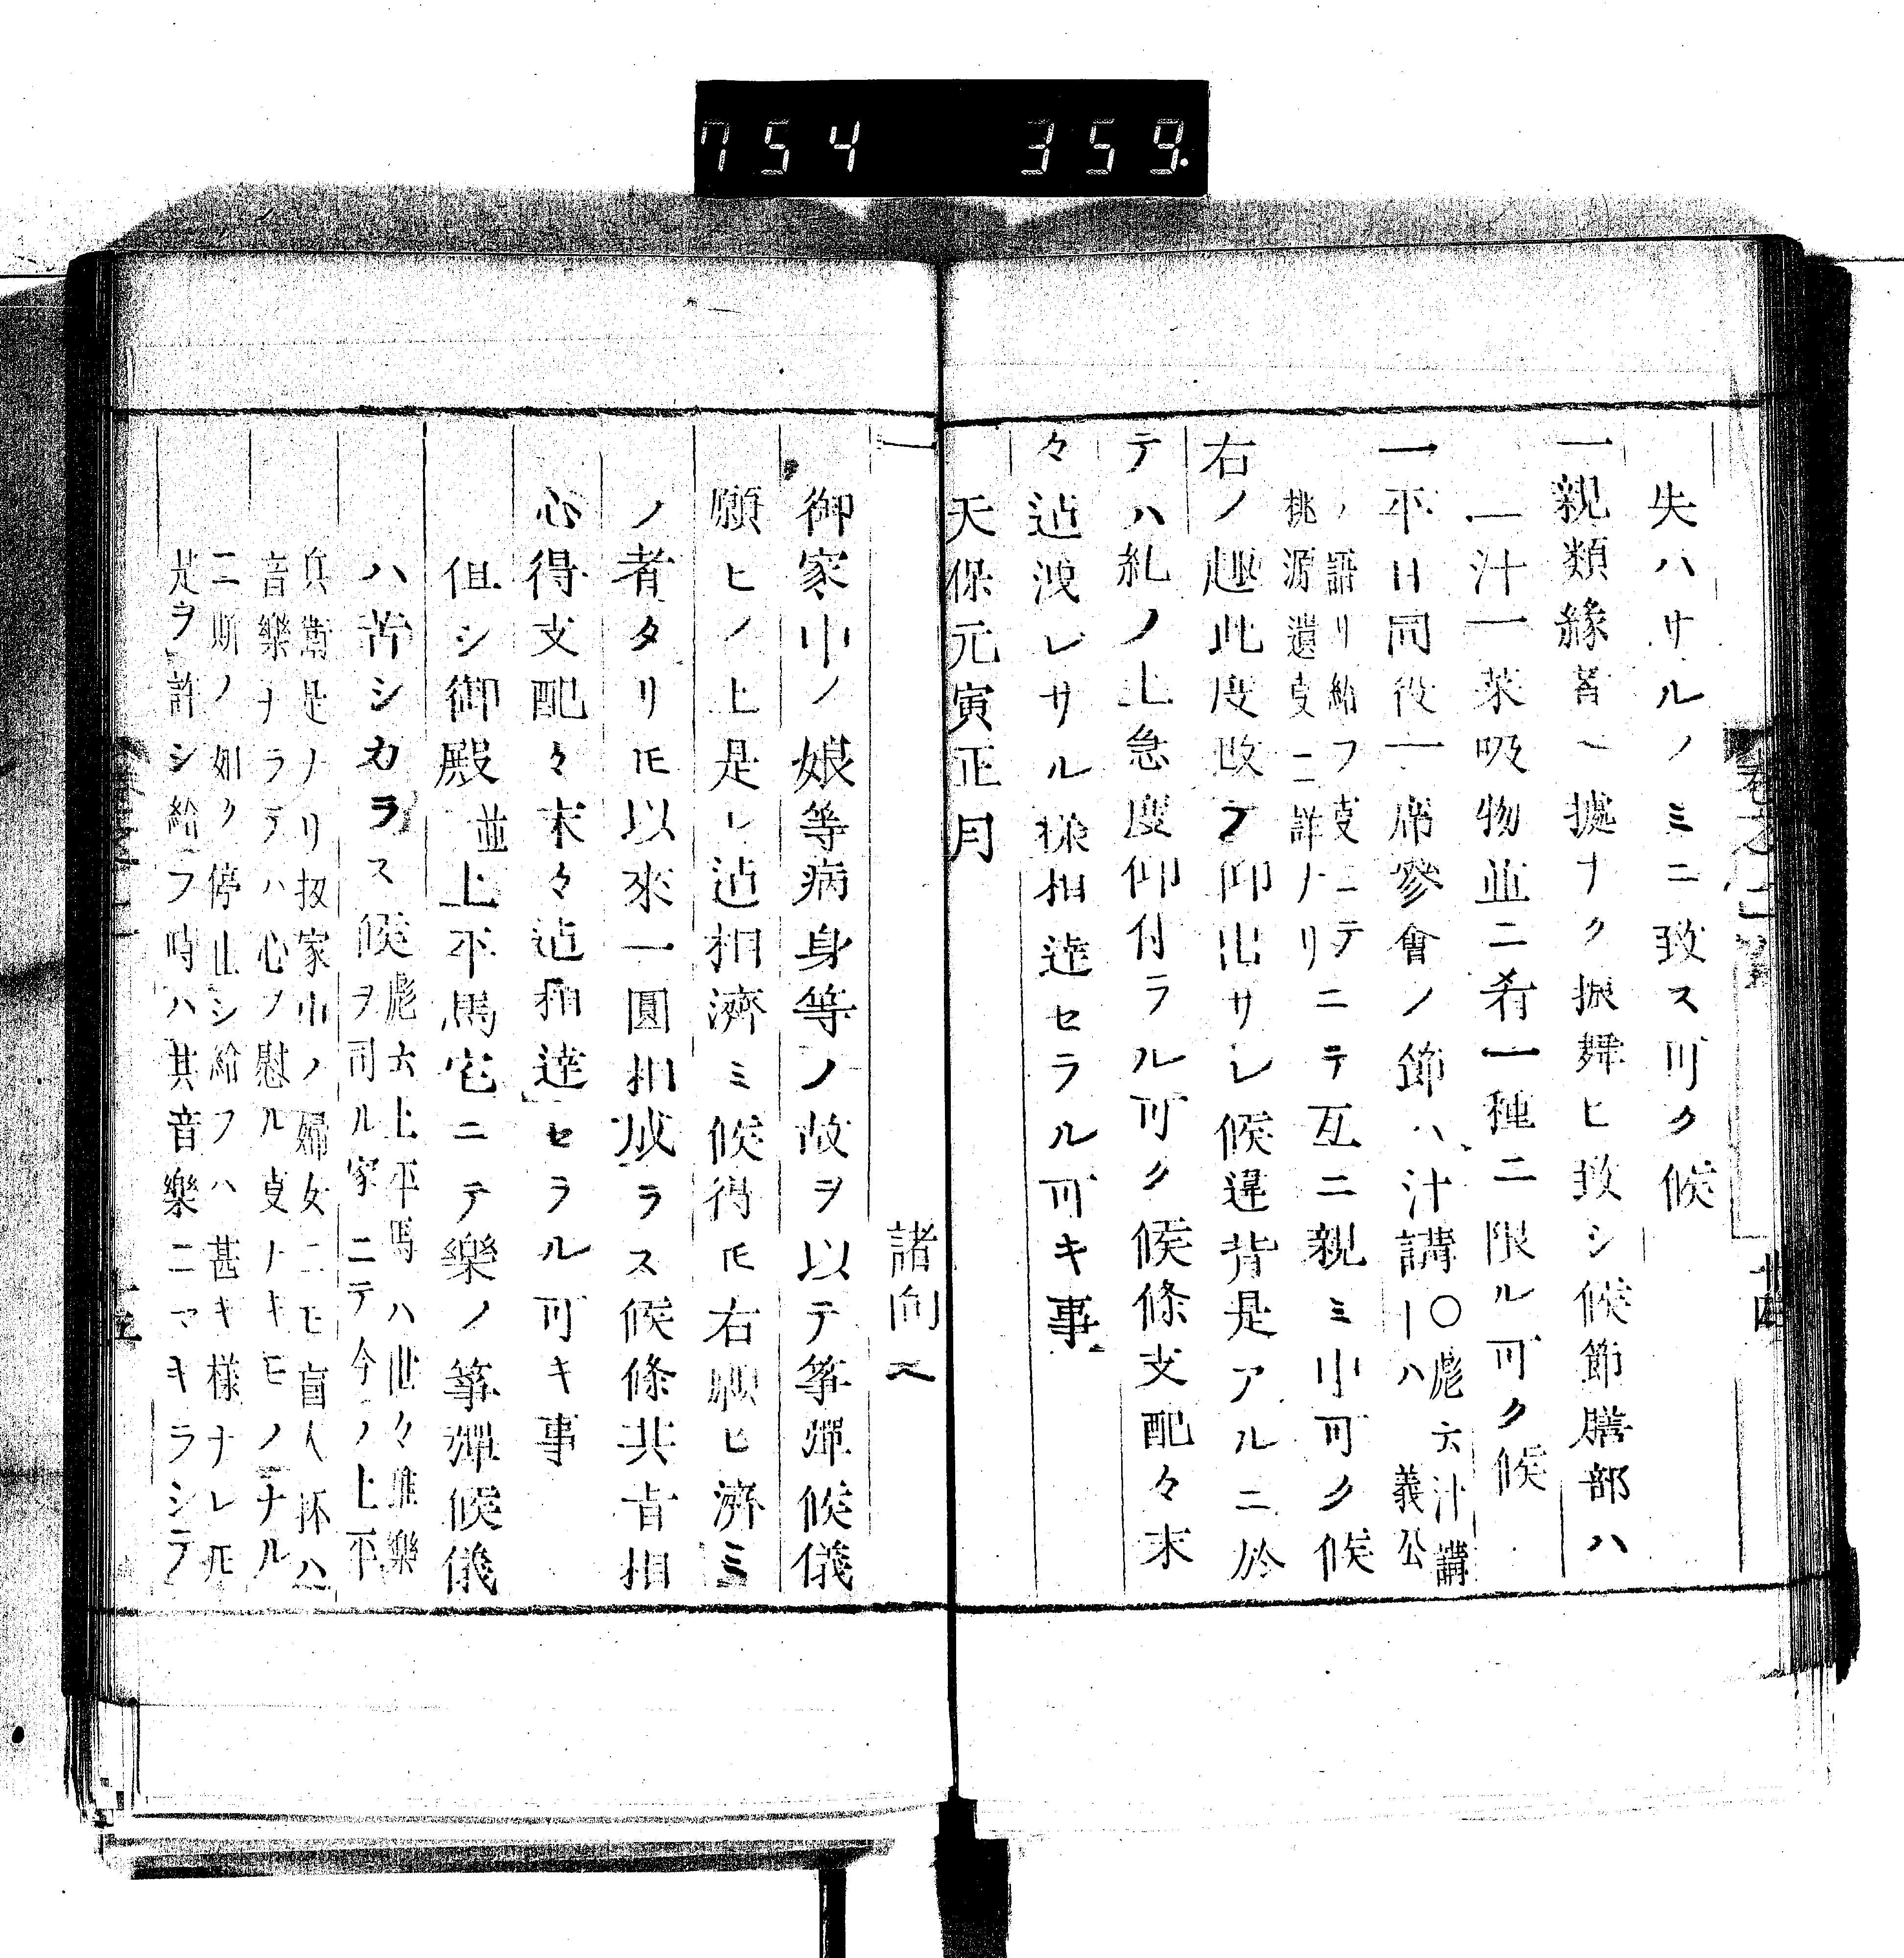 754 359.
失ハサルノミニ致ス可ク候
一親類縁者ヘ據ナク振舞ヒ致シ候節膳部ハ
一汁一菜吸物並ニ肴一種ニ限ル可ク候
一平日同役一席參會ノ節ハ汁講〇彪云汁講ーハ義公
ノ語リ給フ㕝ニテ桃源遺㕝ニ詳ナリニテ互ニ親ミ申可ク候
右ノ趣此度改テ仰出サレ候違背是アルニ於
テハ糺ノ上急度仰付ラル可ク候條支配々末
々迠洩レサル樣相達セラル可キ事
天保元寅正月
一 諸向ヘ
御家中ノ娘等病身等ノ故ヲ以テ箏彈候儀
願ヒノ上是レ迠相濟ミ候得𪜈右願ヒ濟ミ
ノ者タリ𪜈以來一圓相成ラス候條共旨相
心得支配々末々迠相達セラル可キ事
但シ御殿並上平馬宅ニテ樂ノ箏彈候儀
ハ苦シカラス候彪云上平馬ハ世々雅樂ヲ司ル家ニテ今ノ上平
兵衛是ナリ扨家中ノ婦女ニモ盲人抔ハ
音樂ナラテハ心ノ慰ル㕝ナキモノナル
ニ斯ノ如ク停止シ給フハ甚キ樣ナレ𪜈
是ヲ許シ給フ時ハ其音樂ニマキラシテ